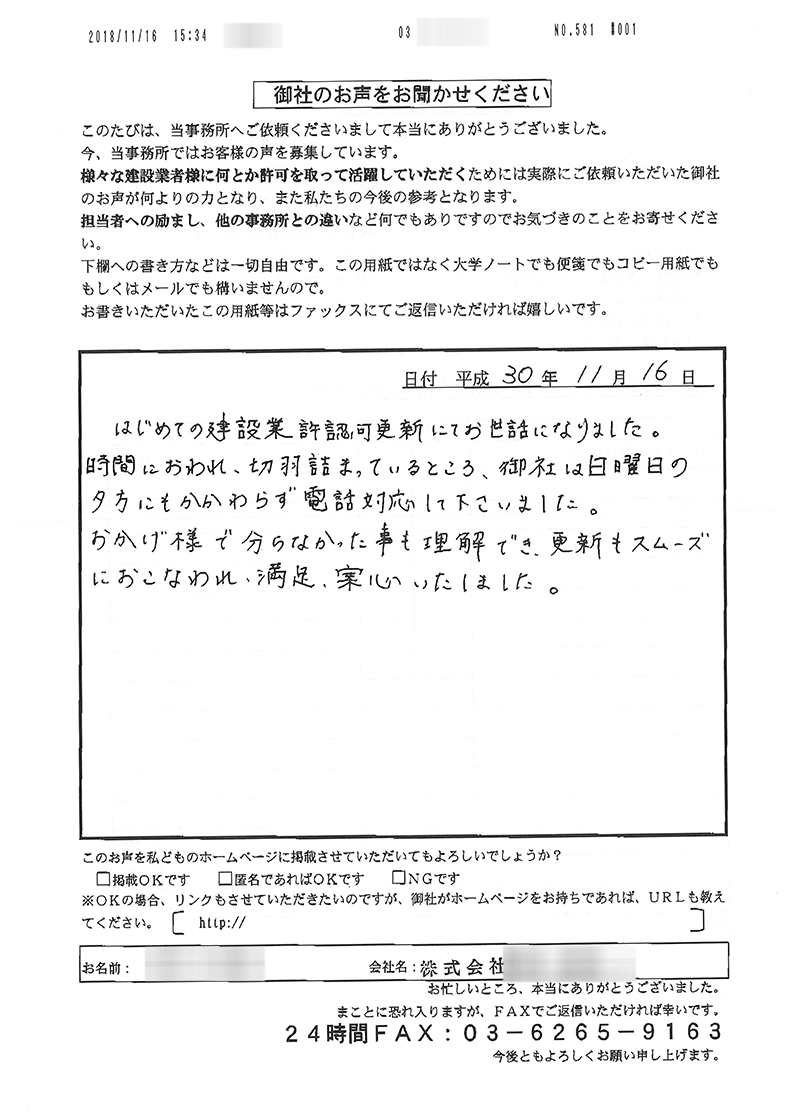 2018/11/16 15:34
03
NO.581 #001
御社のお声をお聞かせください
このたびは、当事務所へご依頼くださいまして本当にありがとうございました。
今、当事務所ではお客様の声を募集しています。
様々な建設業者様に何とか許可を取って活躍していただくためには実際にご依頼いただいた御社
のお声が何よりの力となり、また私たちの今後の参考となります。
担当者への励まし、他の事務所との違いなど何でもありですのでお気づきのことをお寄せくださ
い。
下欄への書き方などは一切自由です。この用紙ではなく大学ノートでも便箋でもコピー用紙でも
もしくはメールでも構いませんので。
お書きいただいたこの用紙等はファックスにてご返信いただければ嬉しいです。
日付 平成 30 年 11 月 16 日
はじめての建設業許認可更新にてお世話になりました。
時間におわれ、切羽詰まっているところ、御社は日曜日の
夕方にもかかわらず電話対応して下さいました。
おかげ様で分らなかった事も理解でき、更新もスムーズ
におこなわれ、満足、安心いたしました。
このお声を私どものホームページに掲載させていただいてもよろしいでしょうか？
□掲載ＯＫです □匿名であればＯＫです □ＮＧです
※ＯＫの場合、リンクもさせていただきたいのですが、御社がホームページをお持ちであれば、ＵＲＬも教え
てください。〔 http:// 〕
お名前： 会社名：株式会社
お忙しいところ、本当にありがとうございました。
まことに恐れ入りますが、ＦＡＸでご返信いただければ幸いです。
２４時間ＦＡＸ：０３－６２６５－９１６３
今後ともよろしくお願い申し上げます。